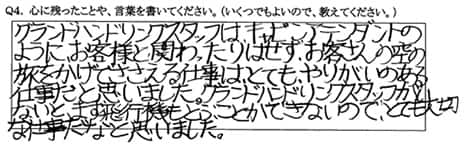 Q4．心に残ったことや、言葉を書いてください。（いくつでもよいので、教えてください。）
グランドハンドリングスタッフは、キャビンアテンダントの
ように、お客様と関わったりはせず、お客さんの空の
旅をかげでささえる仕事は、とても、やりがいのある
仕事だと思いました。グランドハンドリングスタッフがい
ないと、まず飛行機もとぶことができないので、とても大切
な仕事だなと思いました。